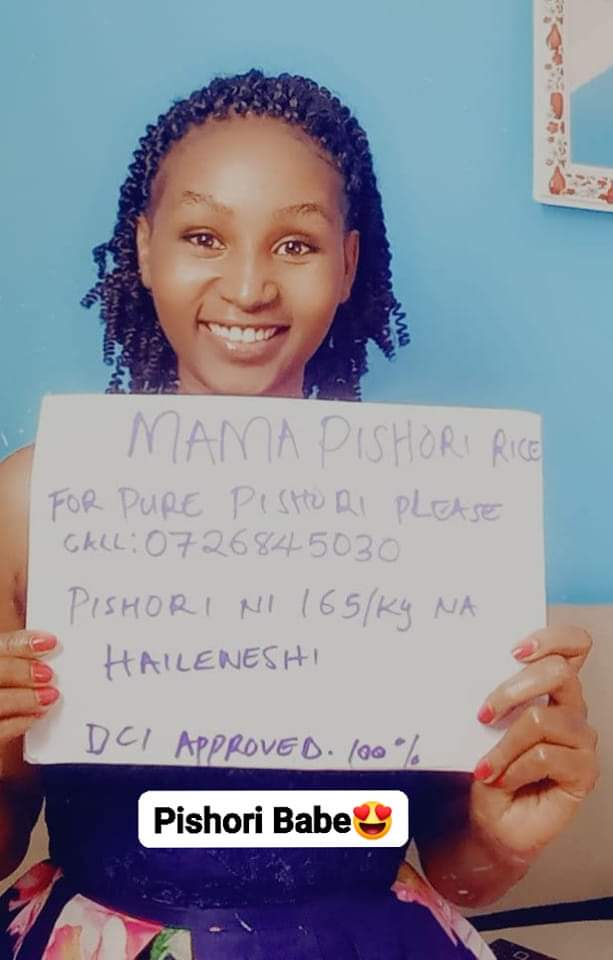 MAMA PISHORI RICE
FOR PURE PISHORI PLEASE
CALL: 0726845030
PISHORI NI 165/Kg NA
HAILENESHI
DCI APPROVED. 100%
Pishori Babe😍